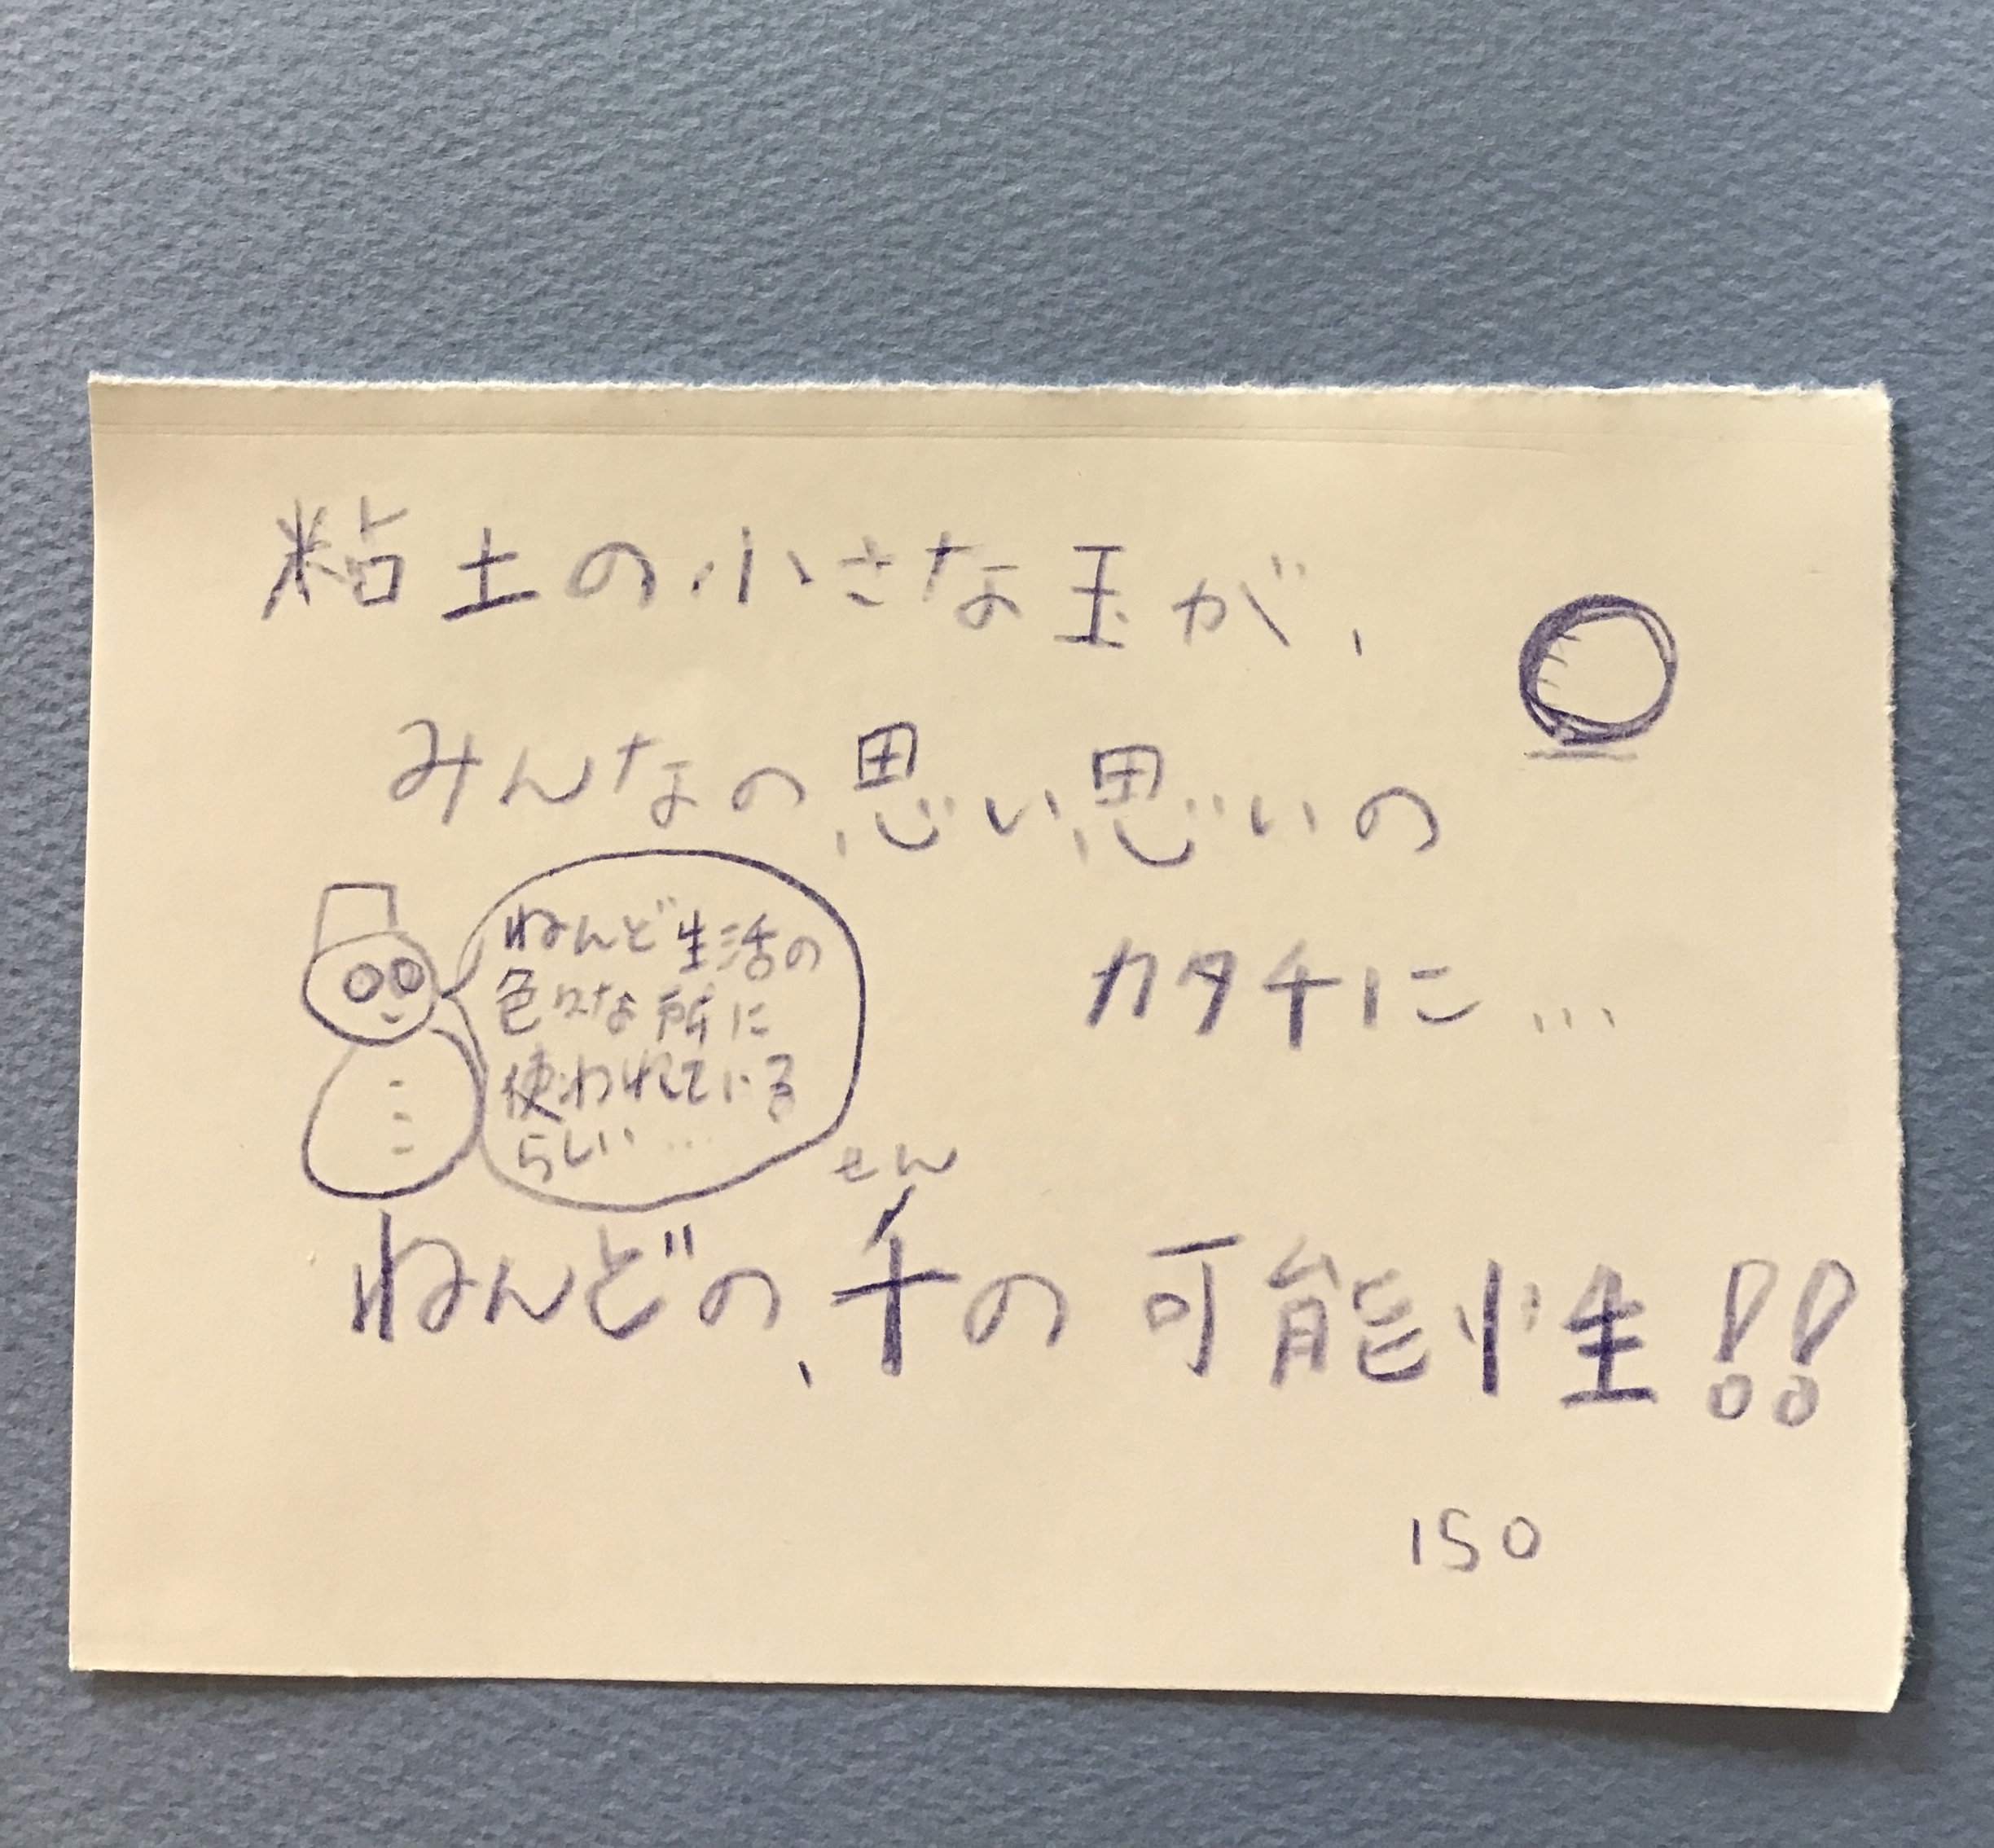 粘土の小さな玉が、
みんなの思い思いの
カタチに…
ねんど生活の
色々な所に
使われている
らしい…
せん
ねんどの、千の可能性!!
ISO